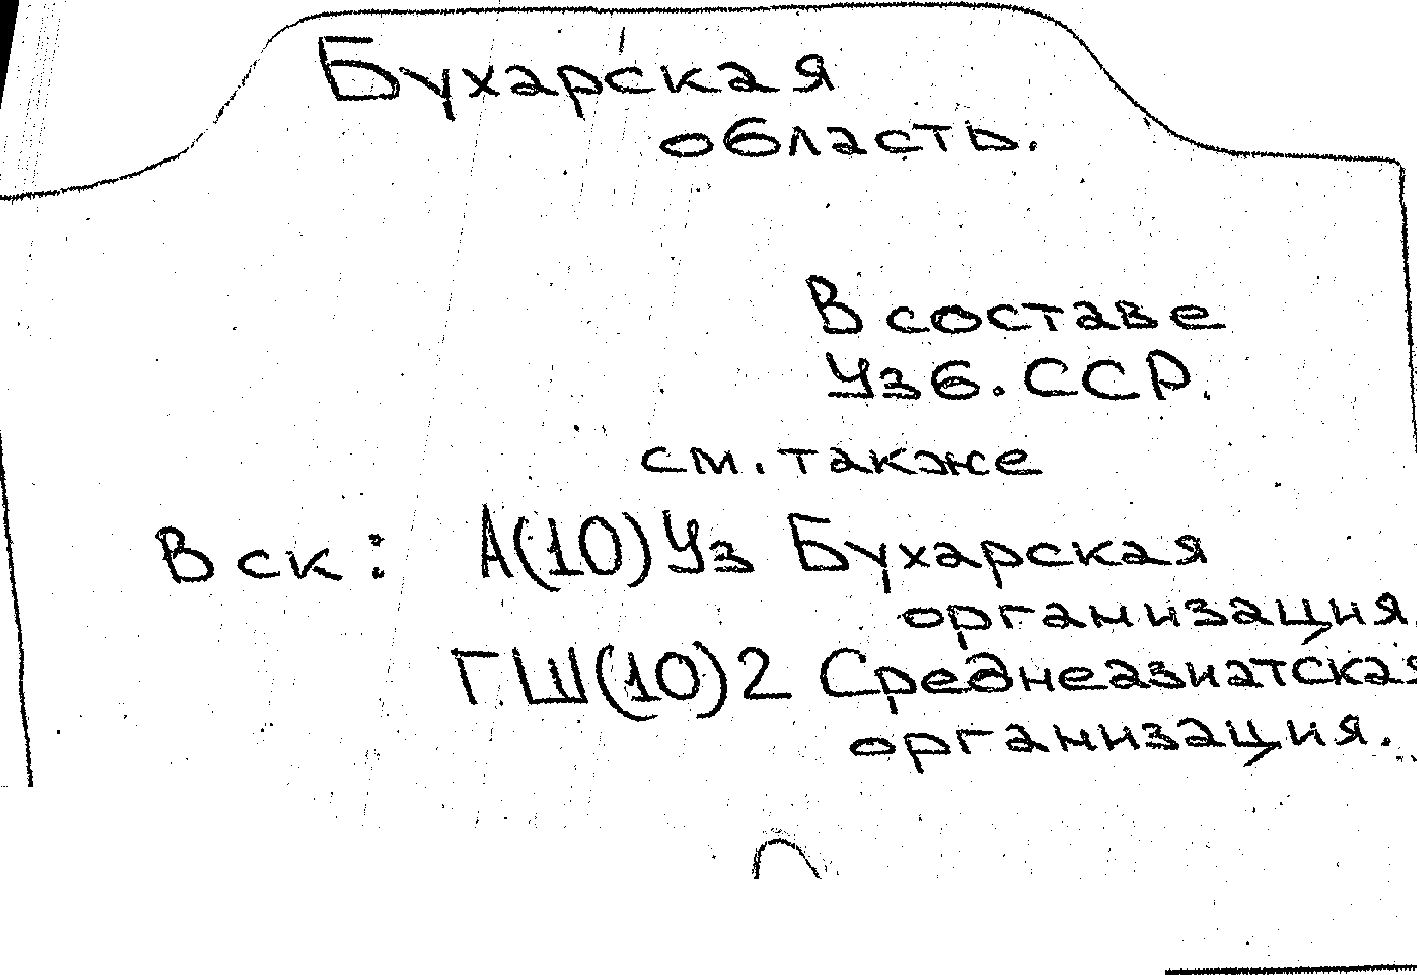 Бухарская
область.
В составе
Узб. ССР.
см. также
В ск: А(10)Уз Бухарская
организация
ГШ(10)2 Среднеазиатская
организация.